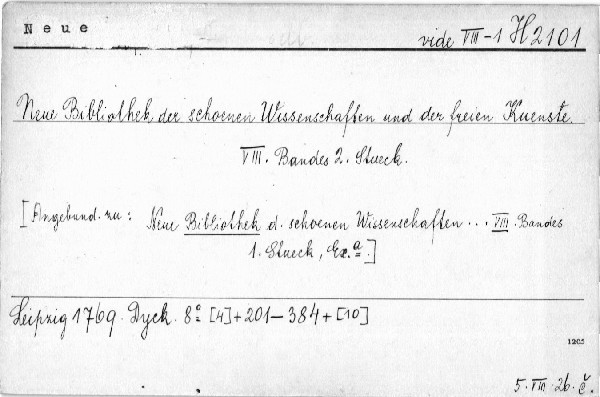 Neue
vide VIII-1 H2101
Neue Bibliothek der schoenen Wissenschaften und der freien Kuenste.
VIII. Bandes 2. Stueck.
[Angebund. zu: Neue Bibliothek d. schoenen Wissenschaften... VIII. Bandes
1. Stueck, Ex. a.]
Leipzig 1769. Dyck. 8° [4]+201-384+[10]
1205
5. VIII. 26. č.